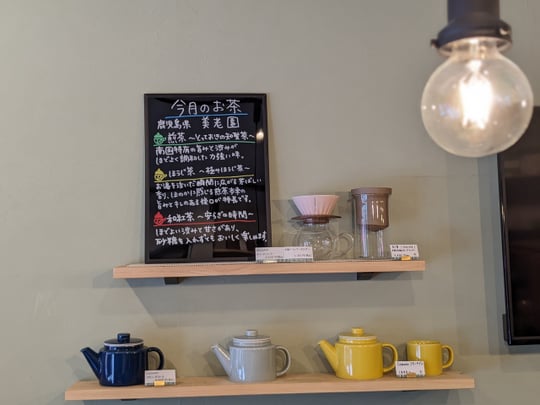 今月のお茶
鹿児島県 美老園
煎茶 〜とっておきの知覧茶〜
南国特有の旨みと渋みが
ほどよく調和した力強い味。
ほうじ茶 〜極みほうじ茶〜
お湯を注いだ瞬間に広がる芳ばしい
香り、ほのかに感じる煎茶本来の
旨みとキレのある後口が特長です。
和紅茶 〜安らぎの時間〜
ほどよい渋みと甘さがあり、
砂糖を入れずともおいしく楽しめます